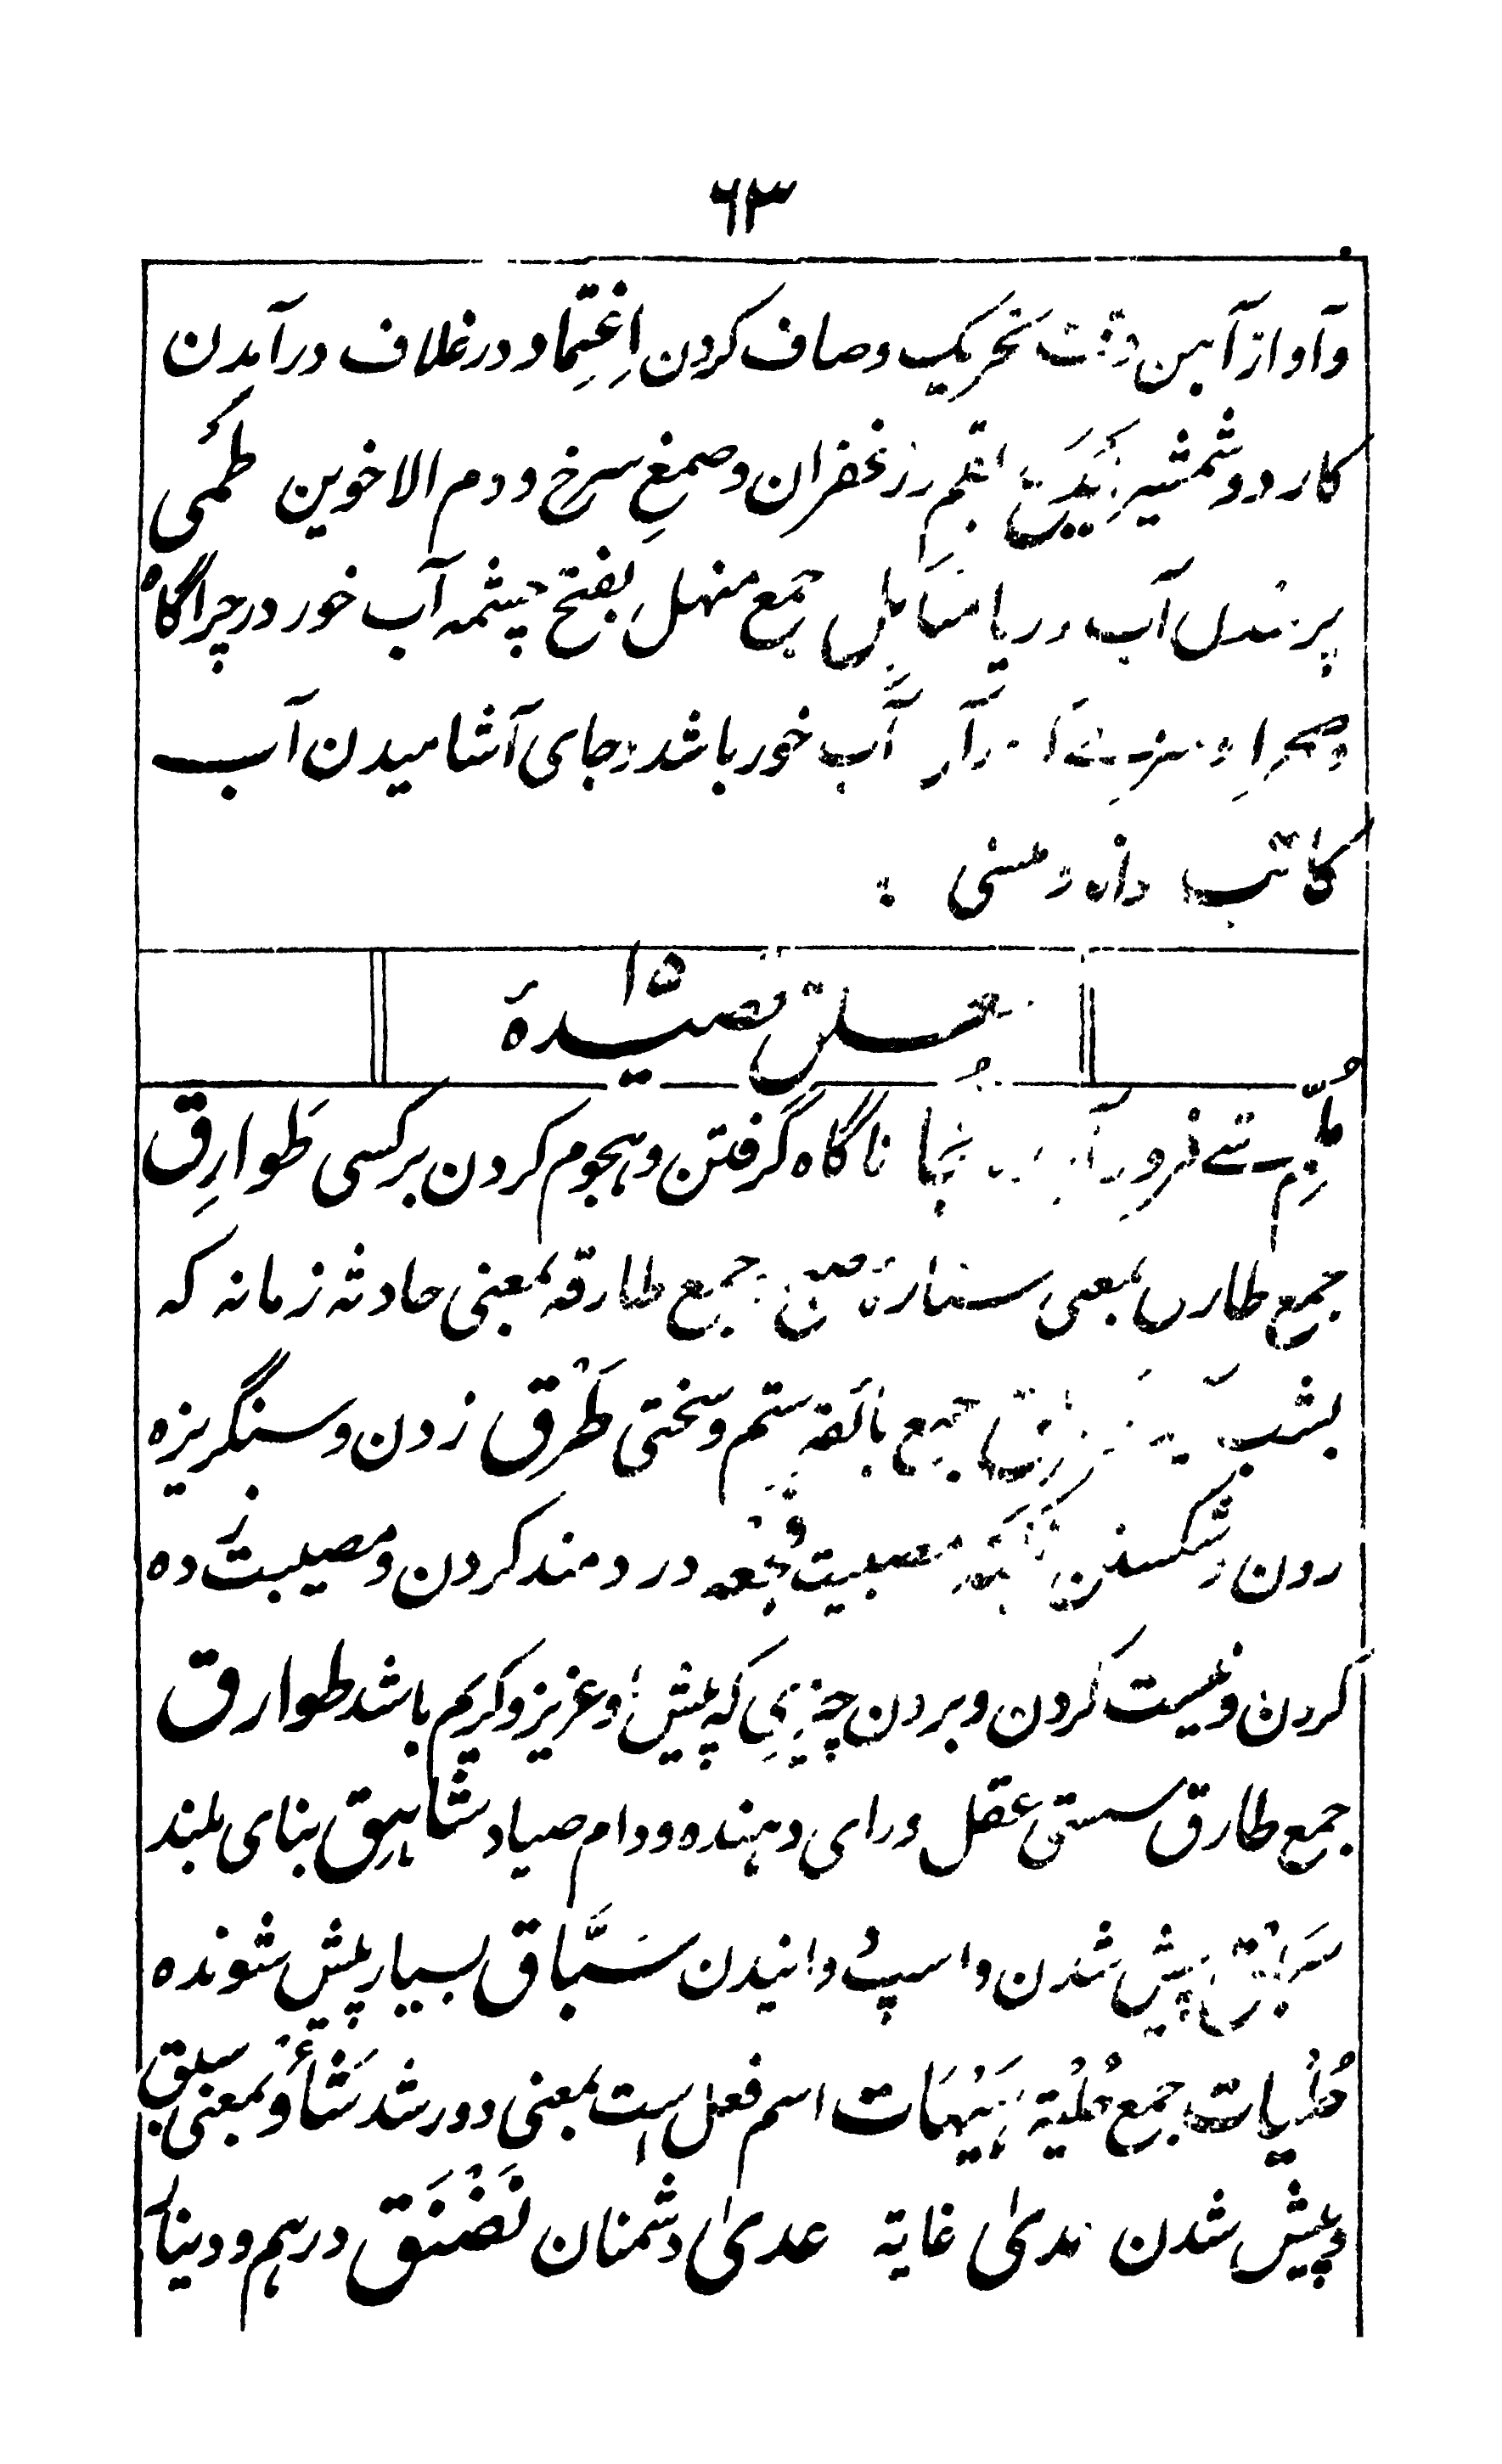 ۶۳
وآواز آہن وقت تحریک وصاف کردن اِغْتِماد در غلاف در آمدن
کارد و شمشیر بقم رزغفران وصمغِ سرخ و دم الاخوین طَمی
پر شدن آب دریا مناہل جمع منہل بفتح چشمہ آب خور در چراگاہ
وصحرا و آب خور باشد وجای آشامیدن آب
کاتب
قصیدۂ ۱۵
مُلِمّ فرود ناگاہ گرفتن وہجوم کردن بر کسی طَوارِق
جمع طارق بمعنی ستارۂ صبح جمع طارقہ بمعنی حادثہ زمانہ کہ
بشب جمع بائقہ ستم وسختی طَرْق زدن وسنگریزہ
زدن وشکستن مصیبت فجعہ دردمند کردن ومصیبت زدہ
کردن ونیست کردن وبردن چیزی کہ پیش او عزیز وکریم باشد طوارق
جمع طارق سستی عقل ورای دہندہ ودام صیاد شاہِق بنای بلند
سَبْق پیش شدن واسپ دوانیدن سَبَّاق بسیار پیش شوندہ
حُلْیات جمع حُلْیَۃ ہَیْہَات اسم فعل است بمعنی دور شد شَأْوٌ بمعنی سبق
وپیش شدن مدیٰ غایۃ عدیٰ دشمنان نَضْنَق درہم ودینار